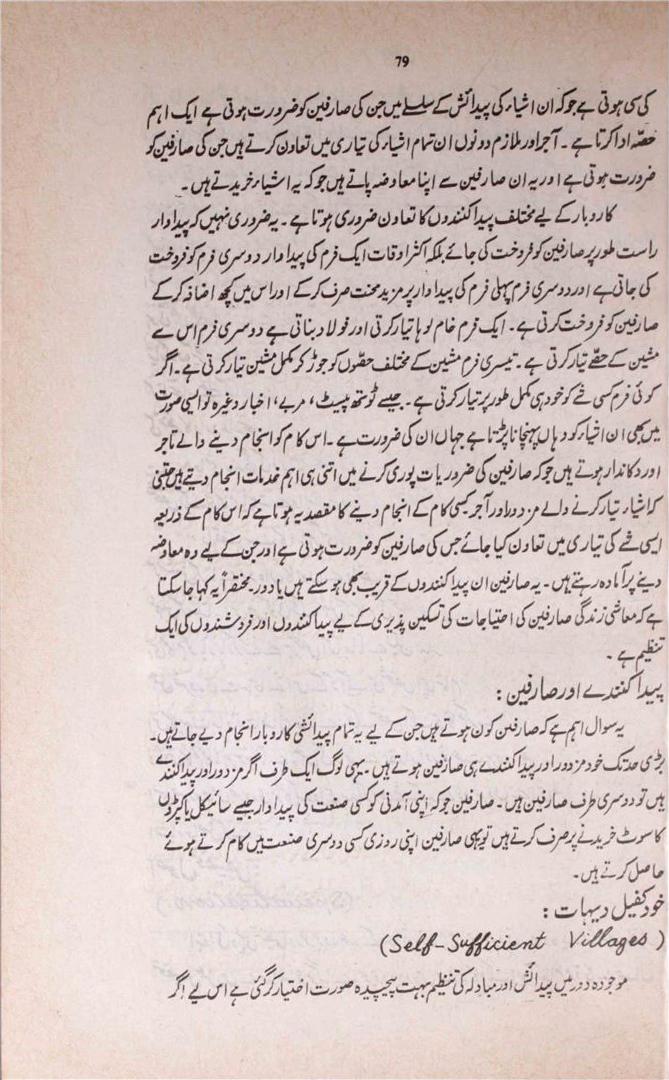 79
کی سی ہوتی ہے جو کہ ان اشیاء کی پیدائش کے سلسلے میں جن کی صارفین کو ضرورت ہوتی ہے ایک اہم
حصّہ ادا کرتا ہے ۔ آجر اور ملازم دونوں ان تمام اشیاء کی تیاری میں تعاون کرتے ہیں جن کی صارفین کو
ضرورت ہوتی ہے اور یہ ان صارفین سے اپنا معاوضہ پاتے ہیں جو کہ یہ اشیاء خریدتے ہیں ۔
کاروبار کے لیے مختلف پیدا کنندوں کا تعاون ضروری ہوتا ہے ۔ یہ ضروری نہیں کہ پیداوار
راست طور پر صارفین کو فروخت کی جائے بلکہ اکثر اوقات ایک فرم کی پیداوار دوسری فرم کو فروخت
کی جاتی ہے اور دوسری فرم پہلی فرم کی پیداوار پر مزید محنت صرف کرکے اور اس میں کچھ اضافہ کرکے
صارفین کو فروخت کرتی ہے ۔ ایک فرم خام لوہا تیار کرتی اور فولاد بناتی ہے دوسری فرم اس سے
مشین کے حصّے تیار کرتی ہے ۔ تیسری فرم مشین کے مختلف حصّوں کو جوڑ کر مکمل مشین تیار کرتی ہے ۔ اگر
کوئی فرم کسی شے کو خود ہی مکمل طور پر تیار کرتی ہے ۔ جیسے ٹوتھ پیسٹ، مربے، اخبار وغیرہ تو ایسی صورت
میں بھی ان اشیاء کو وہاں پہنچانا پڑتا ہے جہاں ان کی ضرورت ہے ۔ اس کام کو انجام دینے والے تاجر
اور دکاندار ہوتے ہیں جو کہ صارفین کی ضروریات پوری کرنے میں اتنی ہی اہم خدمات انجام دیتے ہیں جتنی
کہ اشیاء تیار کرنے والے مزدور اور آجر کسی کام کے انجام دینے کا مقصد یہ ہوتا ہے کہ اس کام کے ذریعہ
ایسی شے کی تیاری میں تعاون کیا جائے جس کی صارفین کو ضرورت ہوتی ہے اور جن کے لیے وہ معاوضہ
دینے پر آمادہ رہتے ہیں ۔ یہ صارفین ان پیدا کنندوں کے قریب بھی ہو سکتے ہیں یا دور ۔ مختصراً یہ کہا جا سکتا
ہے کہ معاشی زندگی صارفین کی احتیاجات کی تسکین پذیری کے لیے پیدا کنندوں اور فروشندوں کی ایک
تنظیم ہے ۔
پیدا کنندے اور صارفین :
یہ سوال اہم ہے کہ صارفین کون ہوتے ہیں جن کے لیے یہ تمام پیدائشی کاروبار انجام دیے جاتے ہیں ۔
بڑی حد تک خود مزدور اور پیدا کنندے ہی صارفین ہوتے ہیں ۔ یہی لوگ ایک طرف اگر مزدور اور پیدا کنندے
ہیں تو دوسری طرف صارفین ہیں ۔ صارفین جو کہ اپنی آمدنی کو کسی صنعت کی پیداوار جیسے سائیکل یا کپڑوں
کا سوٹ خریدنے پر صرف کرتے ہیں تو یہی صارفین اپنی روزی کسی دوسری صنعت میں کام کرتے ہوئے
حاصل کرتے ہیں ۔
خود کفیل دیہات :
(Self-Sufficient Villages)
موجودہ دور میں پیدائش اور مبادلہ کی تنظیم بہت پیچیدہ صورت اختیار کر گئی ہے اس لیے اگر